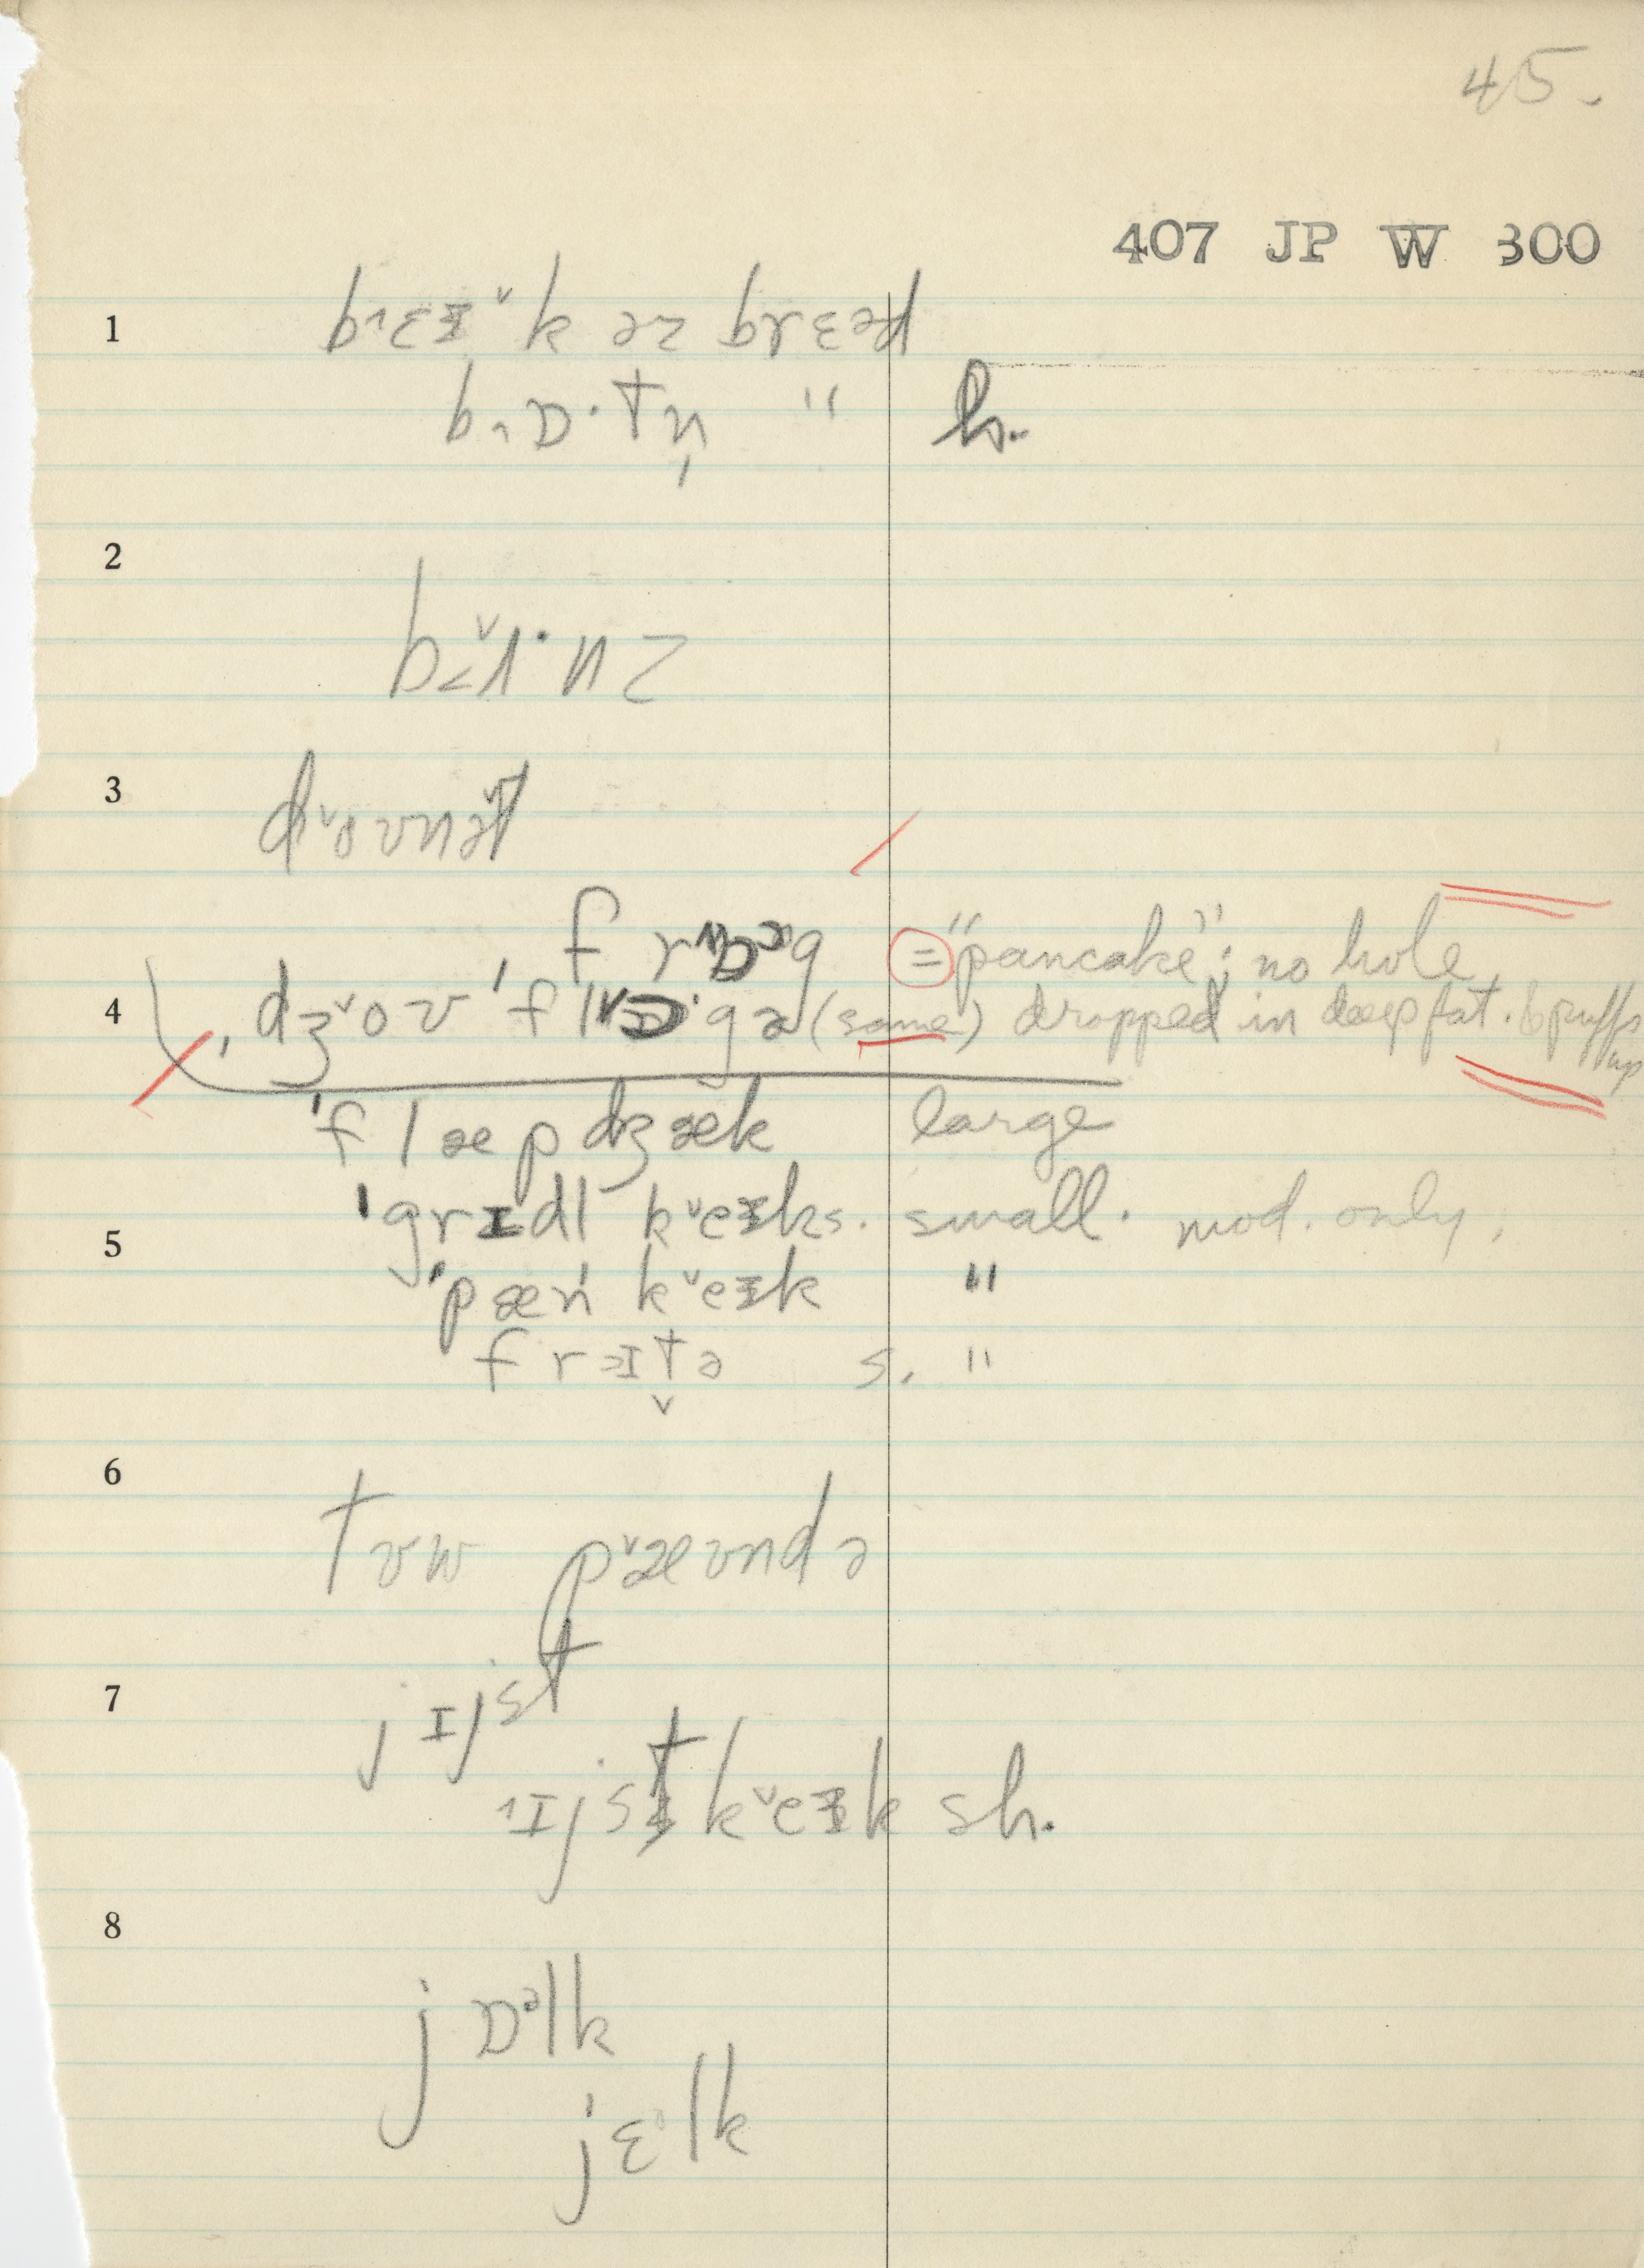 45.
407 JP W 300
1 bɿɛɪ˅k əz brɛəd
bɿɒ·tn̩ " h.
2
b˂˅ɪ·nz
3
d˅oʊnət
f r g ="pancake"; no hole,
4 ˌdʒ˅oʊ ˈfl gə (same) dropped in deep fat. & puffs up
ˈflæpdʒæk large
ˈgrɪdl k˅eɪks. small. mod. only.
5
ˈpænˈk˅eɪk "
frɪt̬ə s. "
6
tʊw p˅æʊndə
7 jɪjst
ɿɪjst k˅eɪk sh.
8
jɒᵊlk
jɛlk